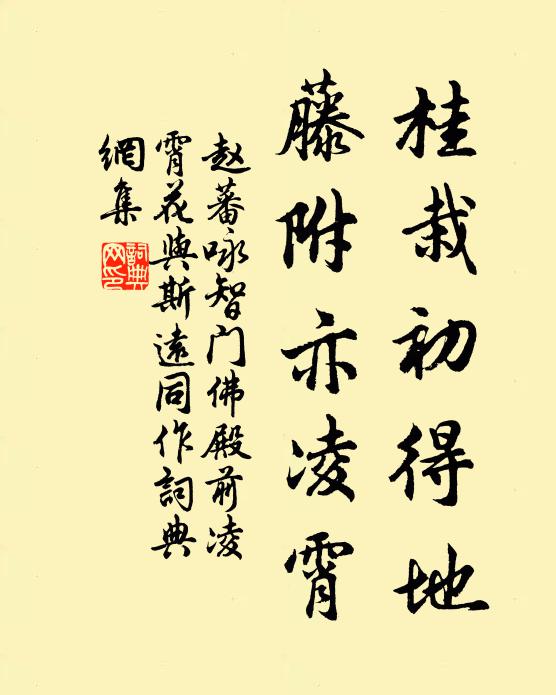 桂栽初得地
藤附亦凌霄
赵蕃咏智门佛殿前凌
霄花與斯遠同作詞典
網集
詞典
网印